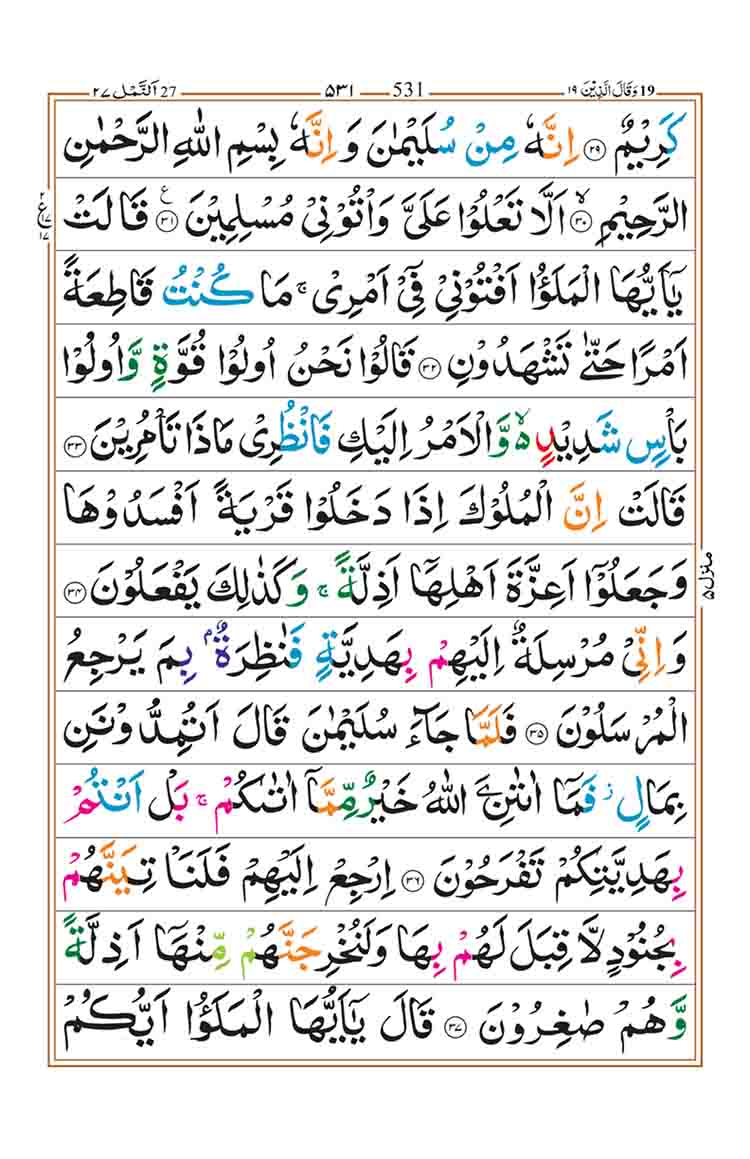 19 وَقَالَ الَّذِيْنَ ١٩ 531 ٥٣١ 27 اَلنَّمْل ٢٧
كَرِيْمٌ ۝٢٩ اِنَّهٗ مِنْ سُلَيْمٰنَ وَاِنَّهٗ بِسْمِ اللّٰهِ الرَّحْمٰنِ
الرَّحِيْمِ ۝٣٠ۙ اَلَّا تَعْلُوْا عَلَيَّ وَاْتُوْنِيْ مُسْلِمِيْنَ ۝٣١ۧ قَالَتْ
٢ ع ١٧ ١٧
يٰۤاَيُّهَا الْمَلَؤُا اَفْتُوْنِيْ فِيْۤ اَمْرِيْ ۚ مَا كُنْتُ قَاطِعَةً
اَمْرًا حَتّٰى تَشْهَدُوْنِ ۝٣٢ قَالُوْا نَحْنُ اُولُوْا قُوَّةٍ وَّاُولُوْا
بَاْسٍ شَدِيْدٍ ۙ۬ وَّالْاَمْرُ اِلَيْكِ فَانْظُرِيْ مَاذَا تَاْمُرِيْنَ ۝٣٣
قَالَتْ اِنَّ الْمُلُوْكَ اِذَا دَخَلُوْا قَرْيَةً اَفْسَدُوْهَا
وَجَعَلُوْۤا اَعِزَّةَ اَهْلِهَاۤ اَذِلَّةً ۚ وَكَذٰلِكَ يَفْعَلُوْنَ ۝٣٤
منزل ٥
وَاِنِّيْ مُرْسِلَةٌ اِلَيْهِمْ بِهَدِيَّةٍ فَنٰظِرَةٌۢ بِمَ يَرْجِعُ
الْمُرْسَلُوْنَ ۝٣٥ فَلَمَّا جَآءَ سُلَيْمٰنَ قَالَ اَتُمِدُّوْنَنِ
بِمَالٍ ؗ فَمَاۤ اٰتٰىنِۦَ اللّٰهُ خَيْرٌ مِّمَّاۤ اٰتٰىكُمْ ۚ بَلْ اَنْتُمْ
بِهَدِيَّتِكُمْ تَفْرَحُوْنَ ۝٣٦ اِرْجِعْ اِلَيْهِمْ فَلَنَاْتِيَنَّهُمْ
بِجُنُوْدٍ لَّا قِبَلَ لَهُمْ بِهَا وَلَنُخْرِجَنَّهُمْ مِّنْهَاۤ اَذِلَّةً
وَّهُمْ صٰغِرُوْنَ ۝٣٧ قَالَ يٰۤاَيُّهَا الْمَلَؤُا اَيُّكُمْ